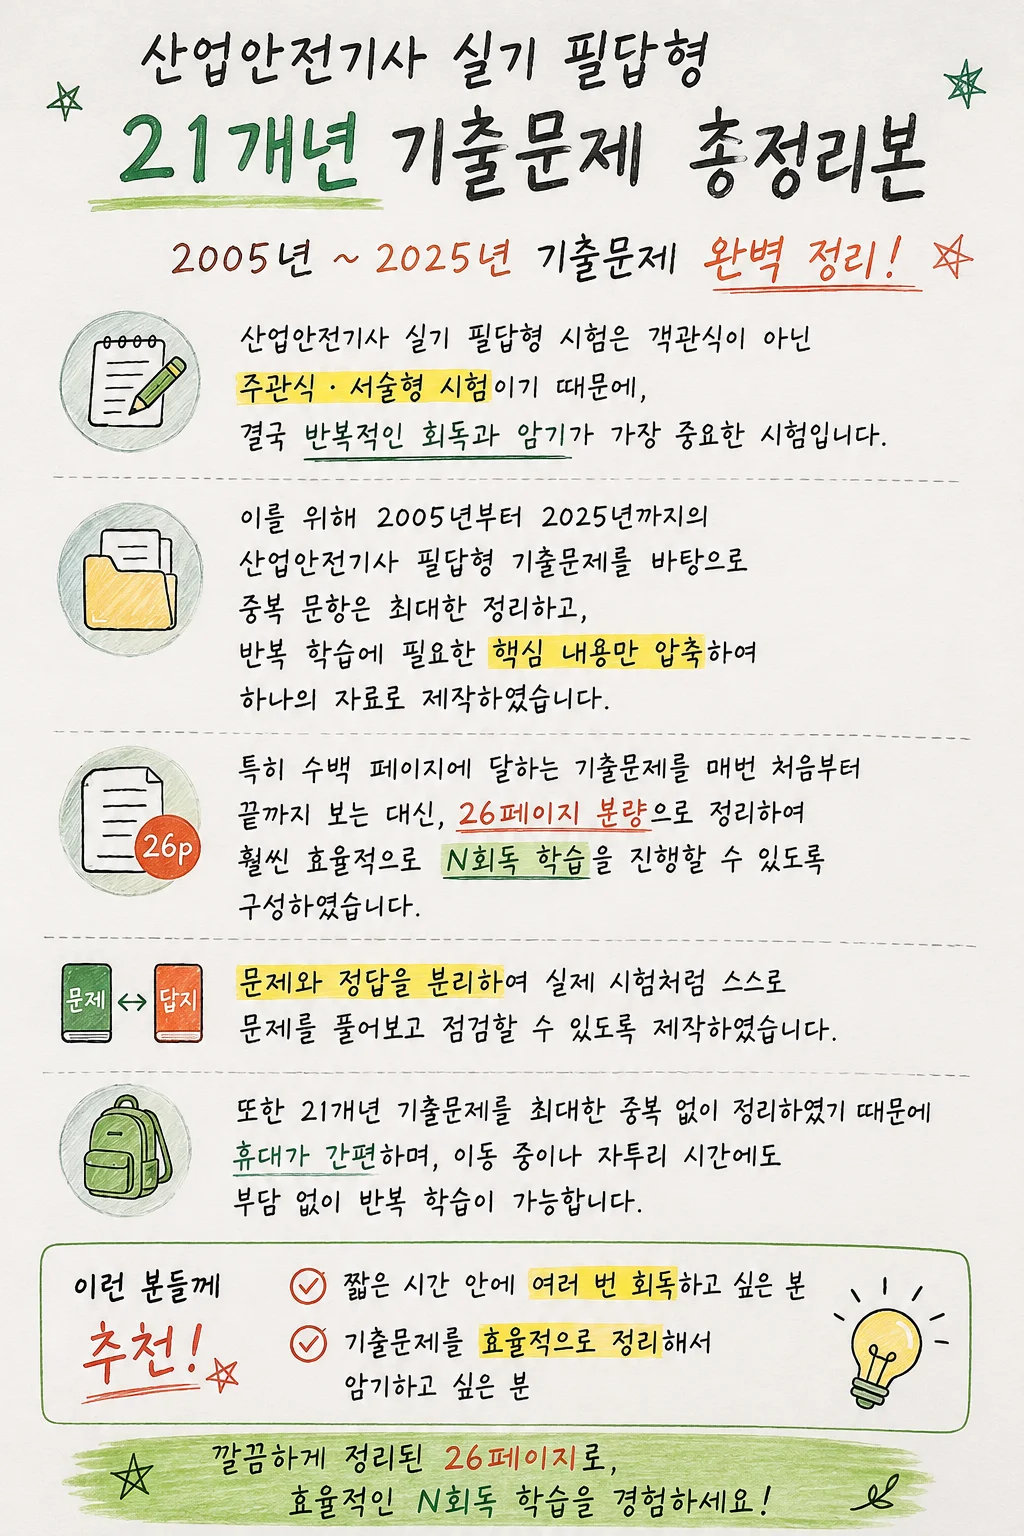 산업안전기사 실기 필답형
21개년 기출문제 총정리본
2005년 ~ 2025년 기출문제 완벽 정리!
산업안전기사 실기 필답형 시험은 객관식이 아닌
주관식 · 서술형 시험이기 때문에,
결국 반복적인 회독과 암기가 가장 중요한 시험입니다.
이를 위해 2005년부터 2025년까지의
산업안전기사 필답형 기출문제를 바탕으로
중복 문항은 최대한 정리하고,
반복 학습에 필요한 핵심 내용만 압축하여
하나의 자료로 제작하였습니다.
특히 수백 페이지에 달하는 기출문제를 매번 처음부터
끝까지 보는 대신, 26페이지 분량으로 정리하여
훨씬 효율적으로 N회독 학습을 진행할 수 있도록
구성하였습니다.
26p
문제 ↔ 답지
문제와 정답을 분리하여 실제 시험처럼 스스로
문제를 풀어보고 점검할 수 있도록 제작하였습니다.
또한 21개년 기출문제를 최대한 중복 없이 정리하였기 때문에
휴대가 간편하며, 이동 중이나 자투리 시간에도
부담 없이 반복 학습이 가능합니다.
이런 분들께
추천!
짧은 시간 안에 여러 번 회독하고 싶은 분
기출문제를 효율적으로 정리해서
암기하고 싶은 분
깔끔하게 정리된 26페이지로,
효율적인 N회독 학습을 경험하세요!